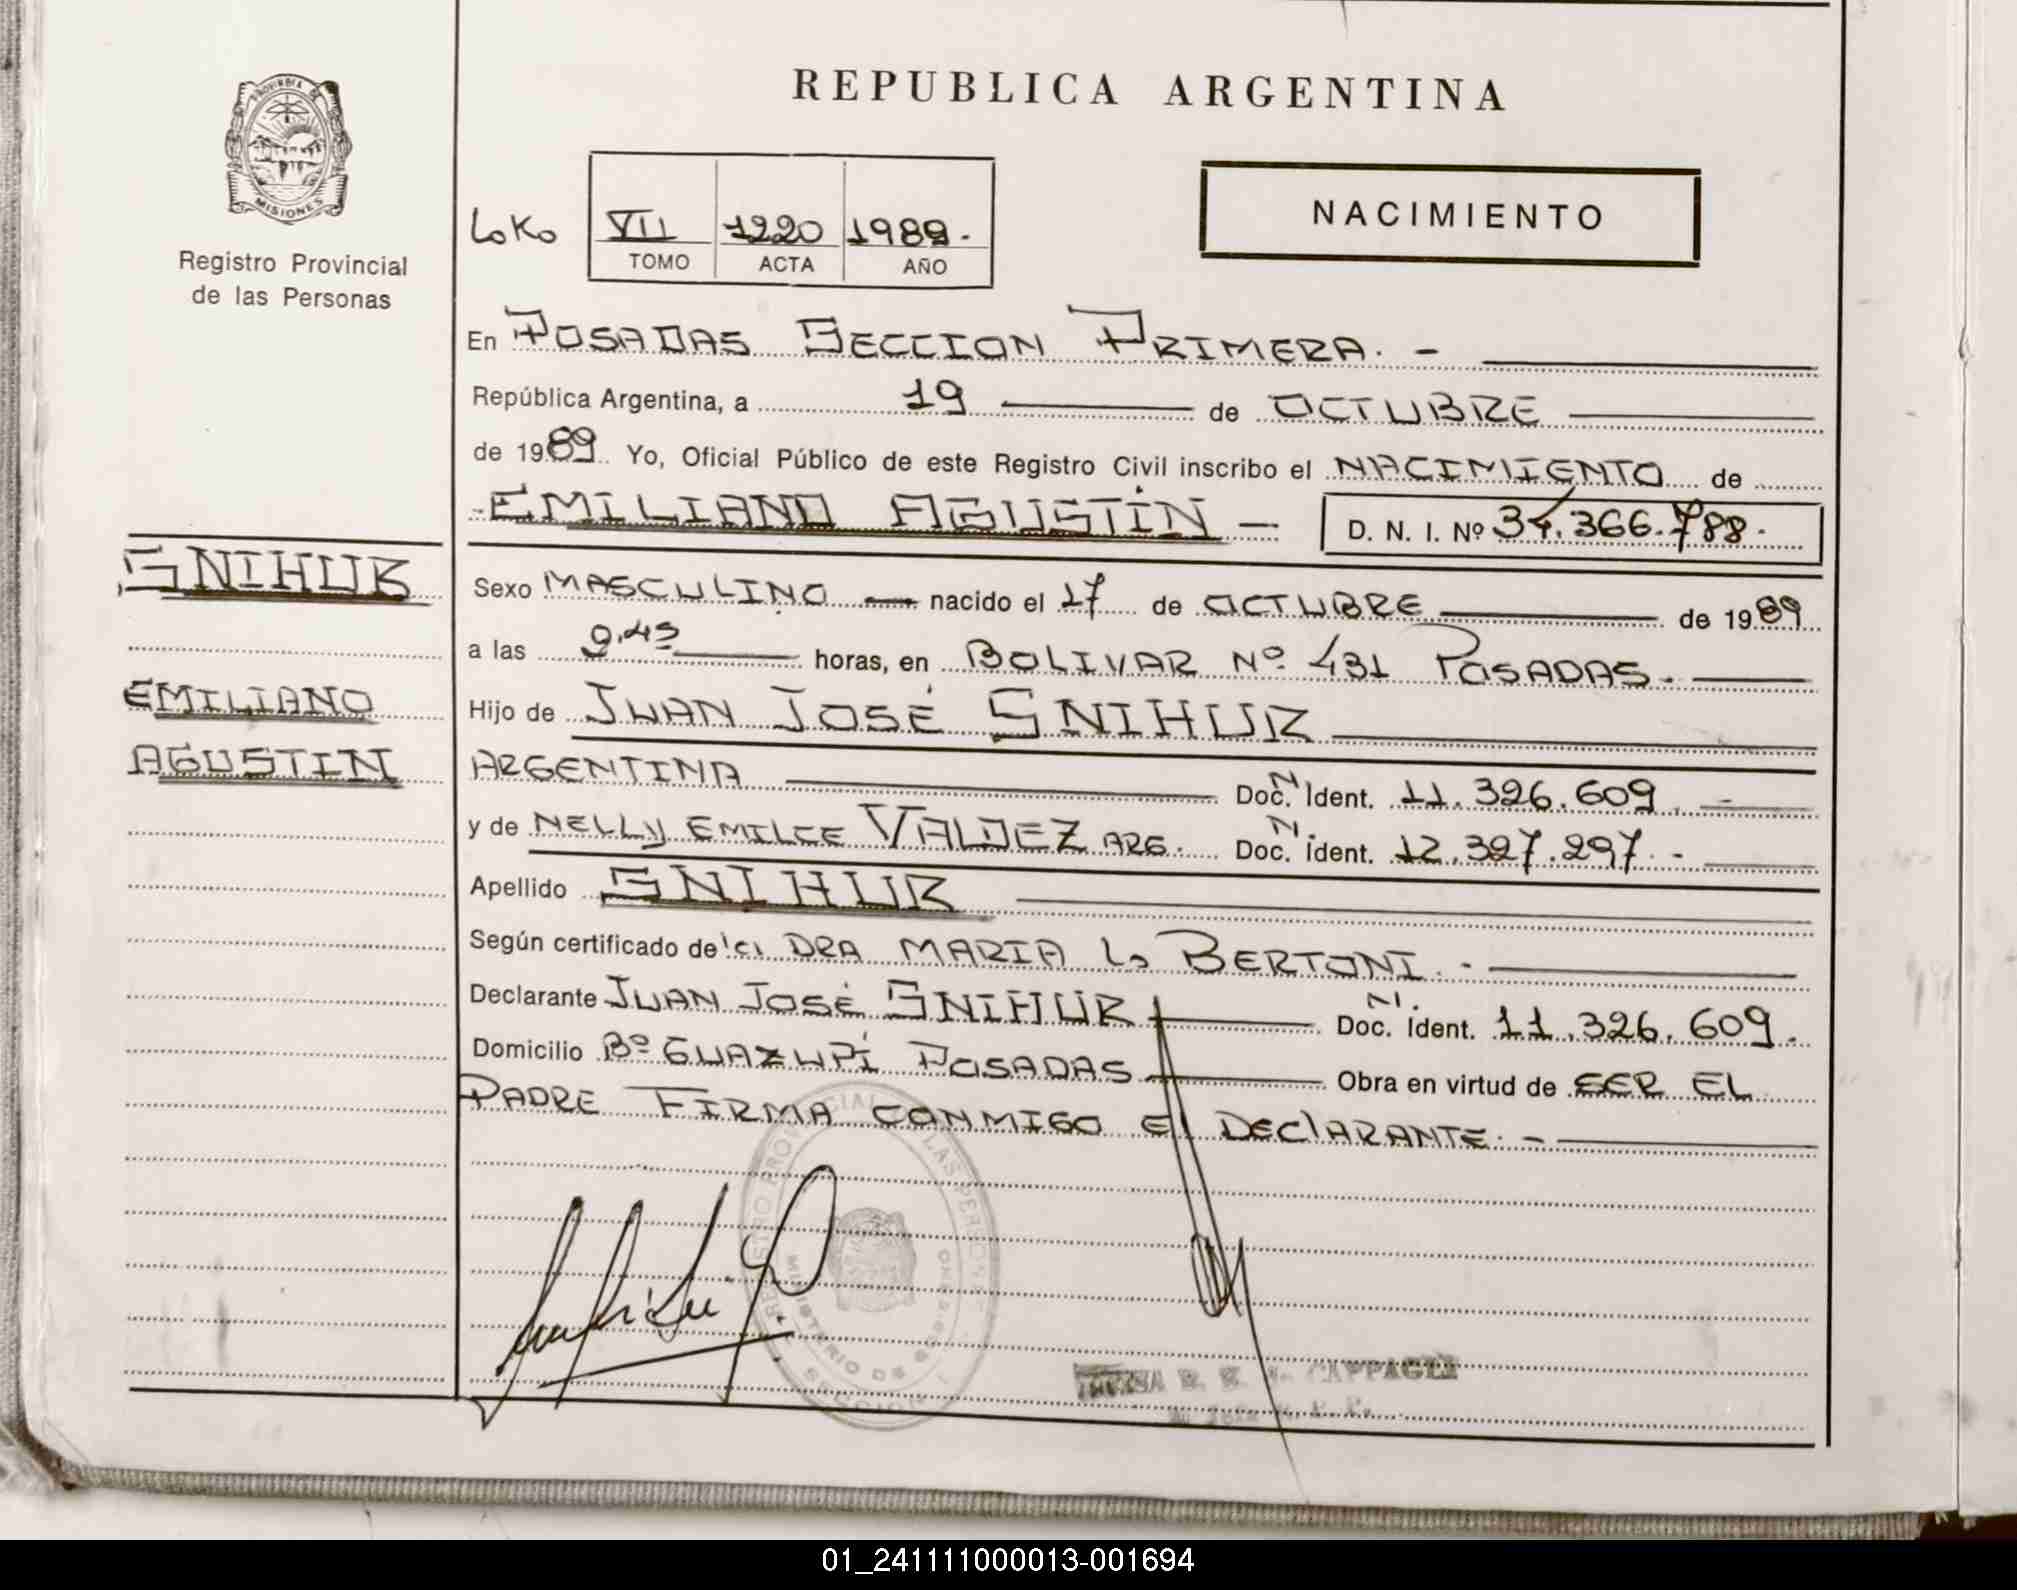 REPUBLICA ARGENTINA
PROVINCIA DE
MISIONES
Registro Provincial
de las Personas
NACIMIENTO
LoKo VII 1220 1989.-
TOMO ACTA AÑO
En POSADAS SECCION PRIMERA. -
República Argentina, a 19 de OCTUBRE
de 1989 Yo, Oficial Público de este Registro Civil inscribo el NACIMIENTO de
-EMILIANO AGUSTÍN - D. N. I. Nº 34.366.788.-
SNIHUR
EMILIANO
AGUSTIN
Sexo MASCULINO nacido el 17 de OCTUBRE de 1989
a las 9.45 horas, en BOLIVAR Nº 431 POSADAS.-
Hijo de JUAN JOSÉ SNIHUR
ARGENTINA Doc. N Ident. 11.326.609. -
y de NELLY EMILCE VALDEZ ARG. Doc. N. ident. 12.327.297. -
Apellido SNIHUR
Según certificado de DRA MARIA L. BERTONI. -
Declarante JUAN JOSÉ SNIHUR Doc. N. Ident. 11.326.609.
Domicilio Bº GUAZUPÍ POSADAS Obra en virtud de SER EL
PADRE FIRMA CONMIGO El DEClARANTE. -
REGISTRO PROVINCIAL LAS PERSONAS
MINISTERIO DE GOBIERNO
SECCION 1
CAPPAGLI
01_241111000013-001694